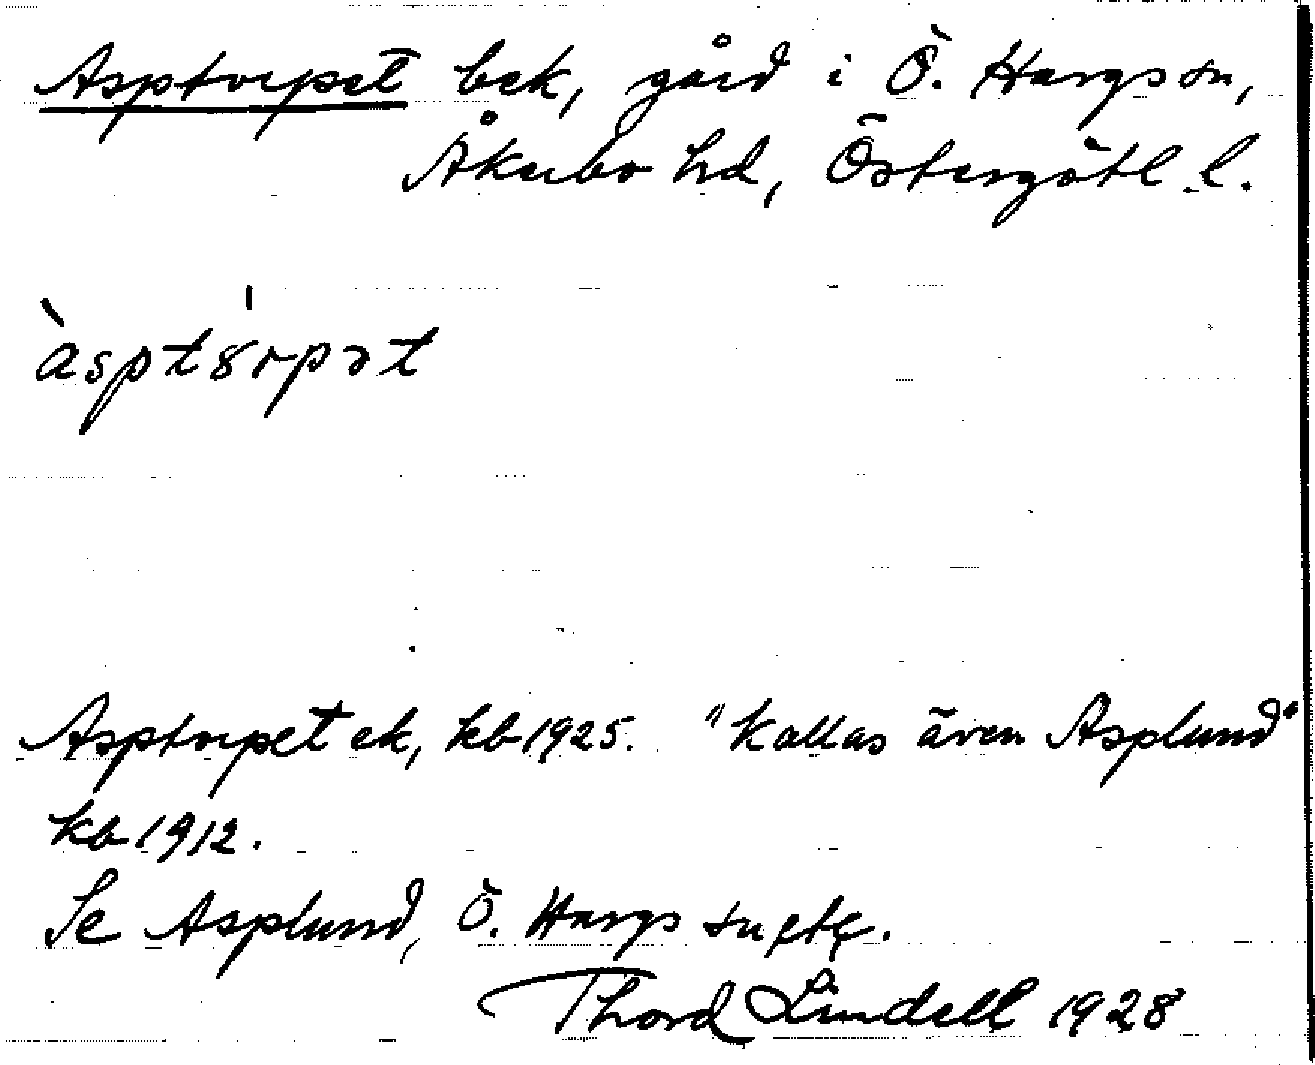 Asptorpet bek, gård i Ö. Hargs sn,
Åkerbo hd, Östergötl. l.
àsptȣ́rpət
Asptorpet ek, kb 1925. "Kallas även Asplund"
kb 1912.
Se Asplund, Ö. Hargs sn, etc.
Thord Lindell 1928